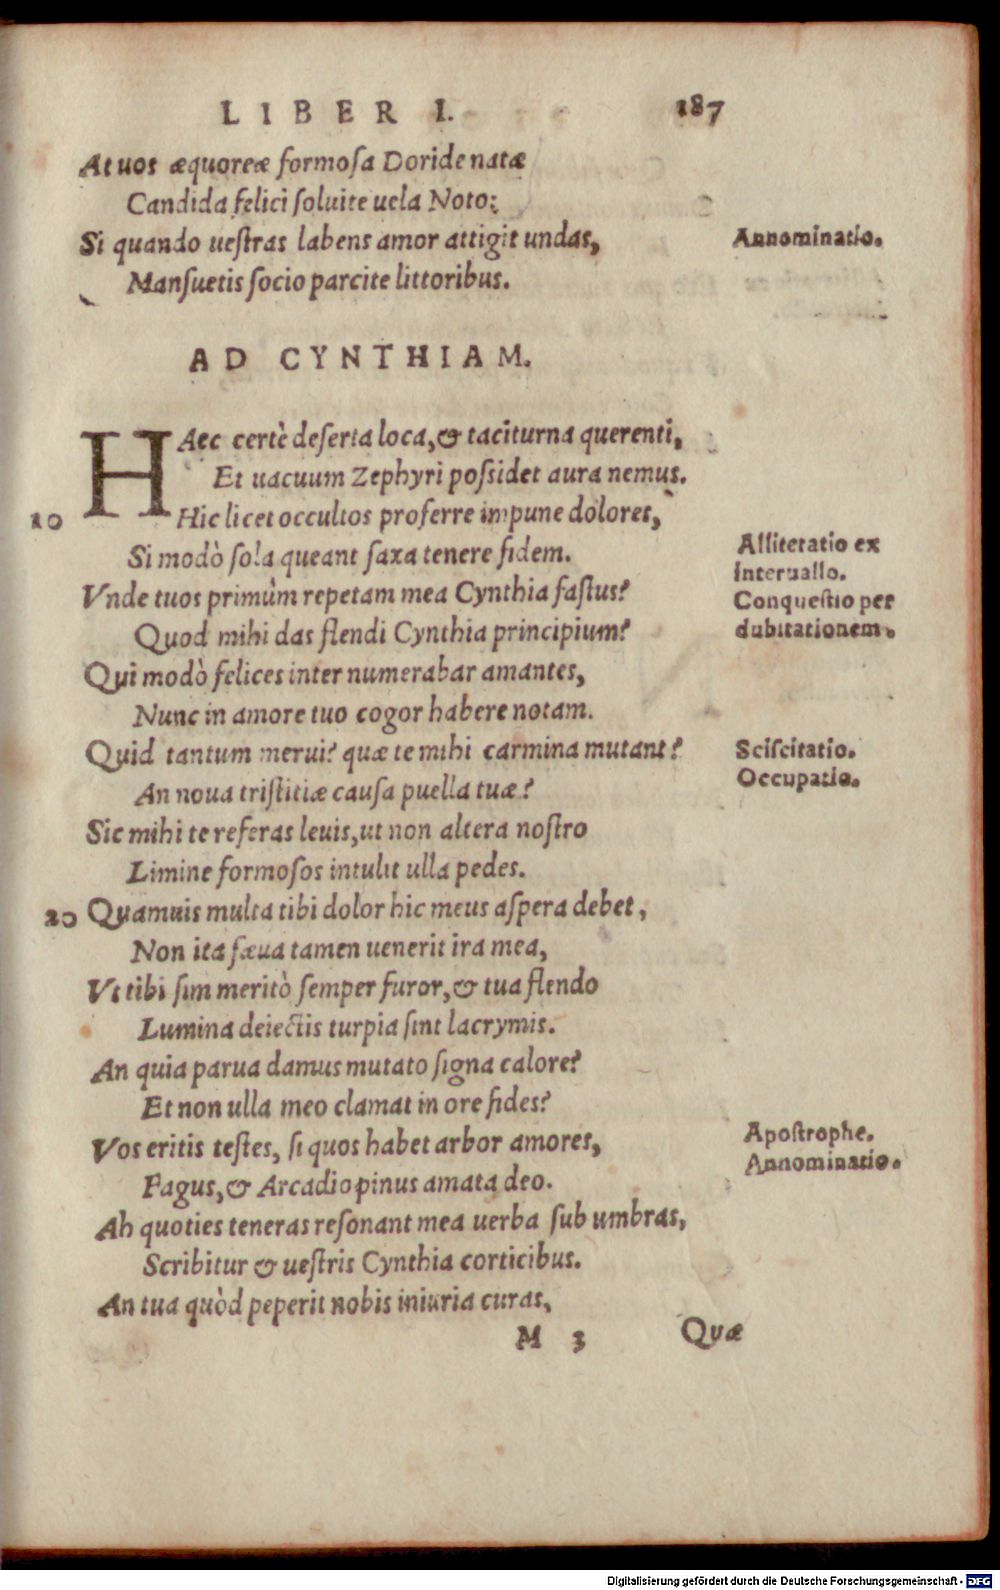 LIBER I. 187
At uos æquoreæ formoſa Doride natæ
Candida felici ſoluite uela Noto:
Si quando ueſtras labens amor attigit undas, Annominatio.
Manſuetis ſocio parcite littoribus.
AD CYNTHIAM.
HAec certè deſerta loca, & taciturna querenti,
Et uacuum Zephyri poſsidet aura nemus.
10 Hic licet occultos proferre impune dolores,
Si modò ſola queant ſaxa tenere fidem. Alliteratio ex
interuallo.
Vnde tuos primùm repetam mea Cynthia faſtus? Conqueſtio per
Quod mihi das flendi Cynthia principium? dubitationem.
Qui modò felices inter numerabar amantes,
Nunc in amore tuo cogor habere notam.
Quid tantum merui? quæ te mihi carmina mutant? Sciſcitatio.
An noua triſtitiæ cauſa puella tuæ? Occupatio.
Sic mihi te referas leuis, ut non altera noſtro
Limine formoſos intulit ulla pedes.
20 Quamuis multa tibi dolor hic meus aſpera debet,
Non ita ſæua tamen uenerit ira mea,
Vt tibi ſim meritò ſemper furor, & tua flendo
Lumina deiectis turpia ſint lacrymis.
An quia parua damus mutato ſigna calore?
Et non ulla meo clamat in ore fides?
Vos eritis teſtes, ſi quos habet arbor amores, Apoſtrophe.
Fagus, & Arcadio pinus amata deo. Annominatio.
Ah quoties teneras reſonant mea uerba ſub umbras,
Scribitur & ueſtris Cynthia corticibus.
An tua quòd peperit nobis iniuria curas,
M 3 Quæ
Digitalisierung gefördert durch die Deutsche Forschungsgemeinschaft - DFG